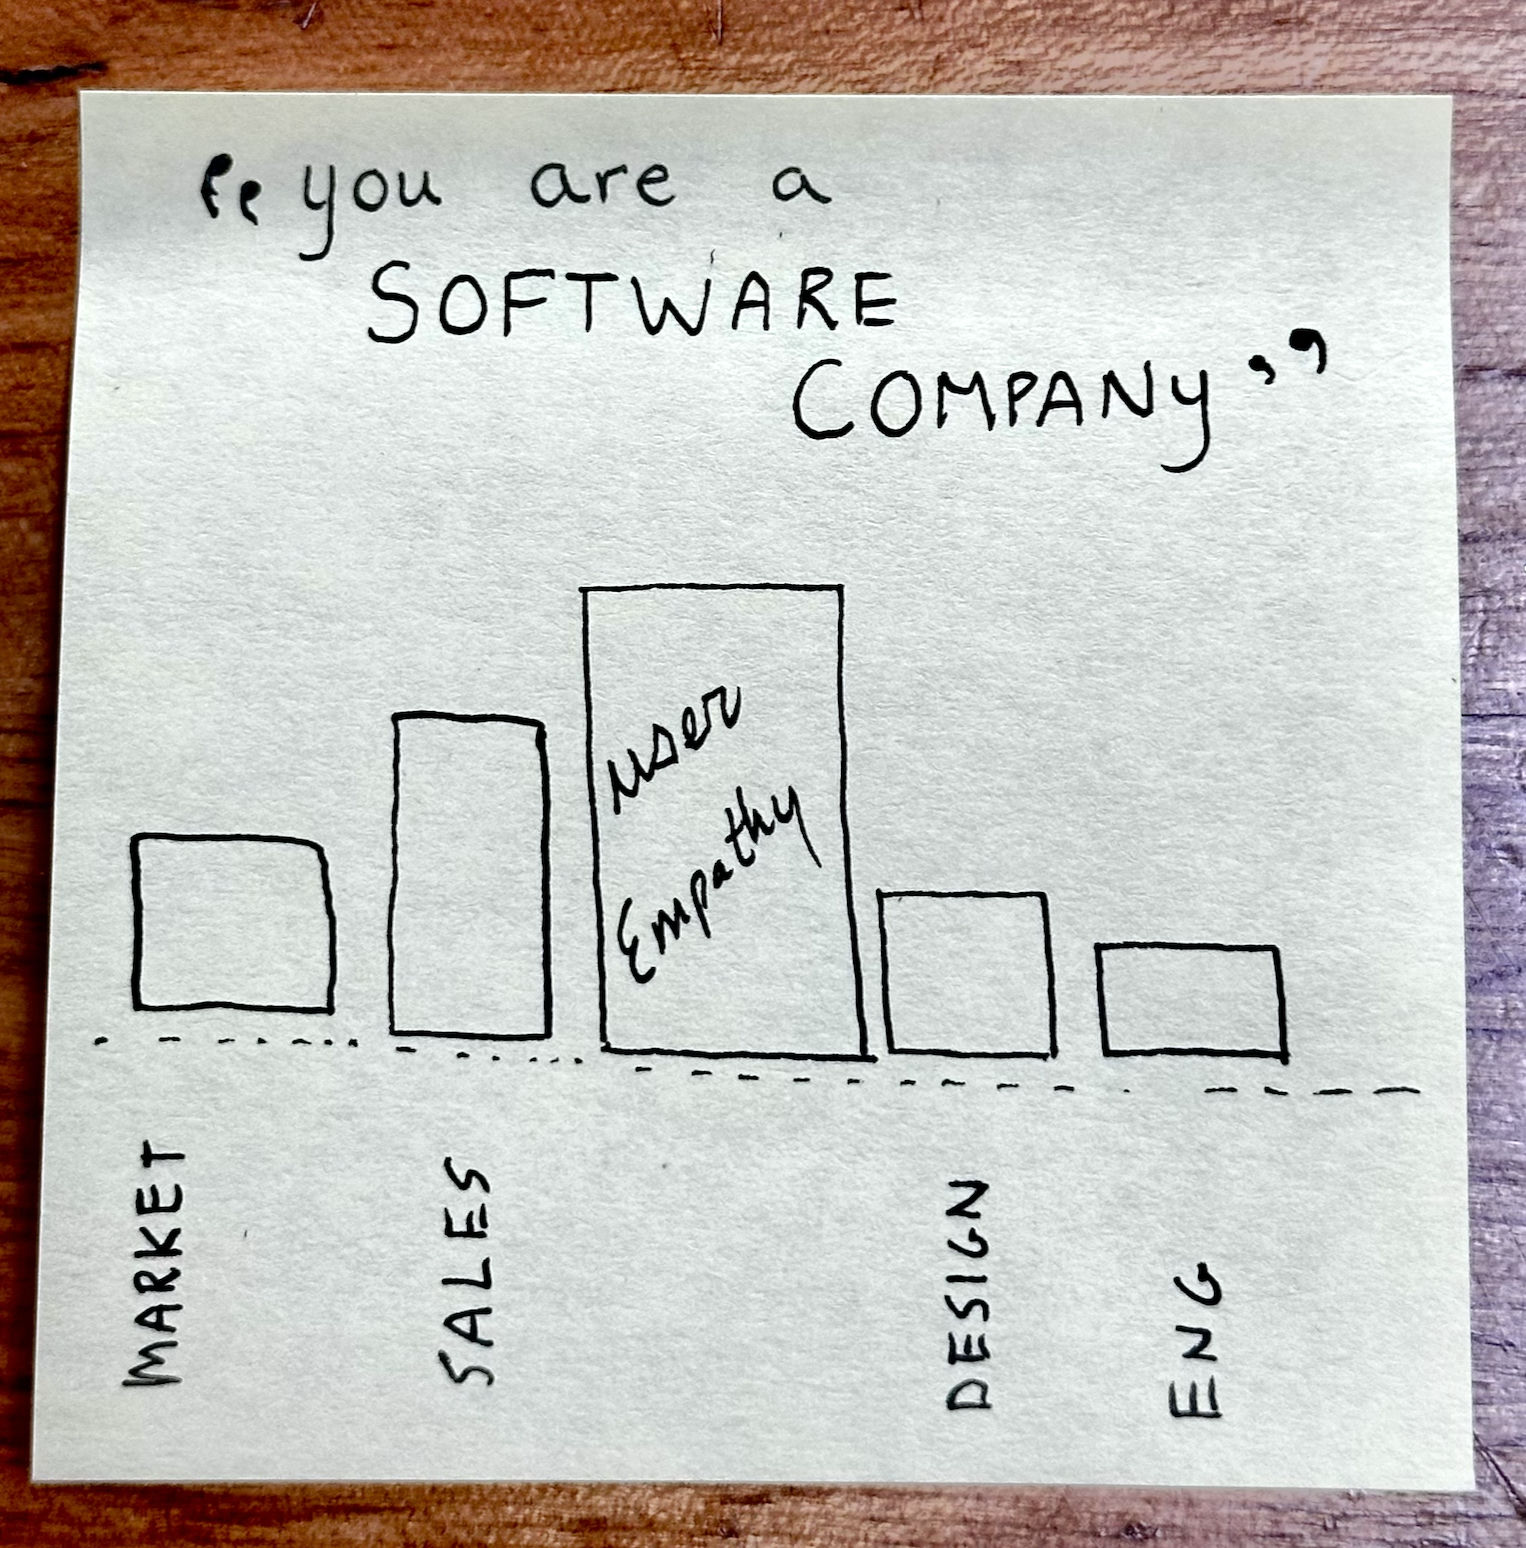 “you are a
SOFTWARE
COMPANY”
user
Empathy
MARKET
SALES
DESIGN
ENG